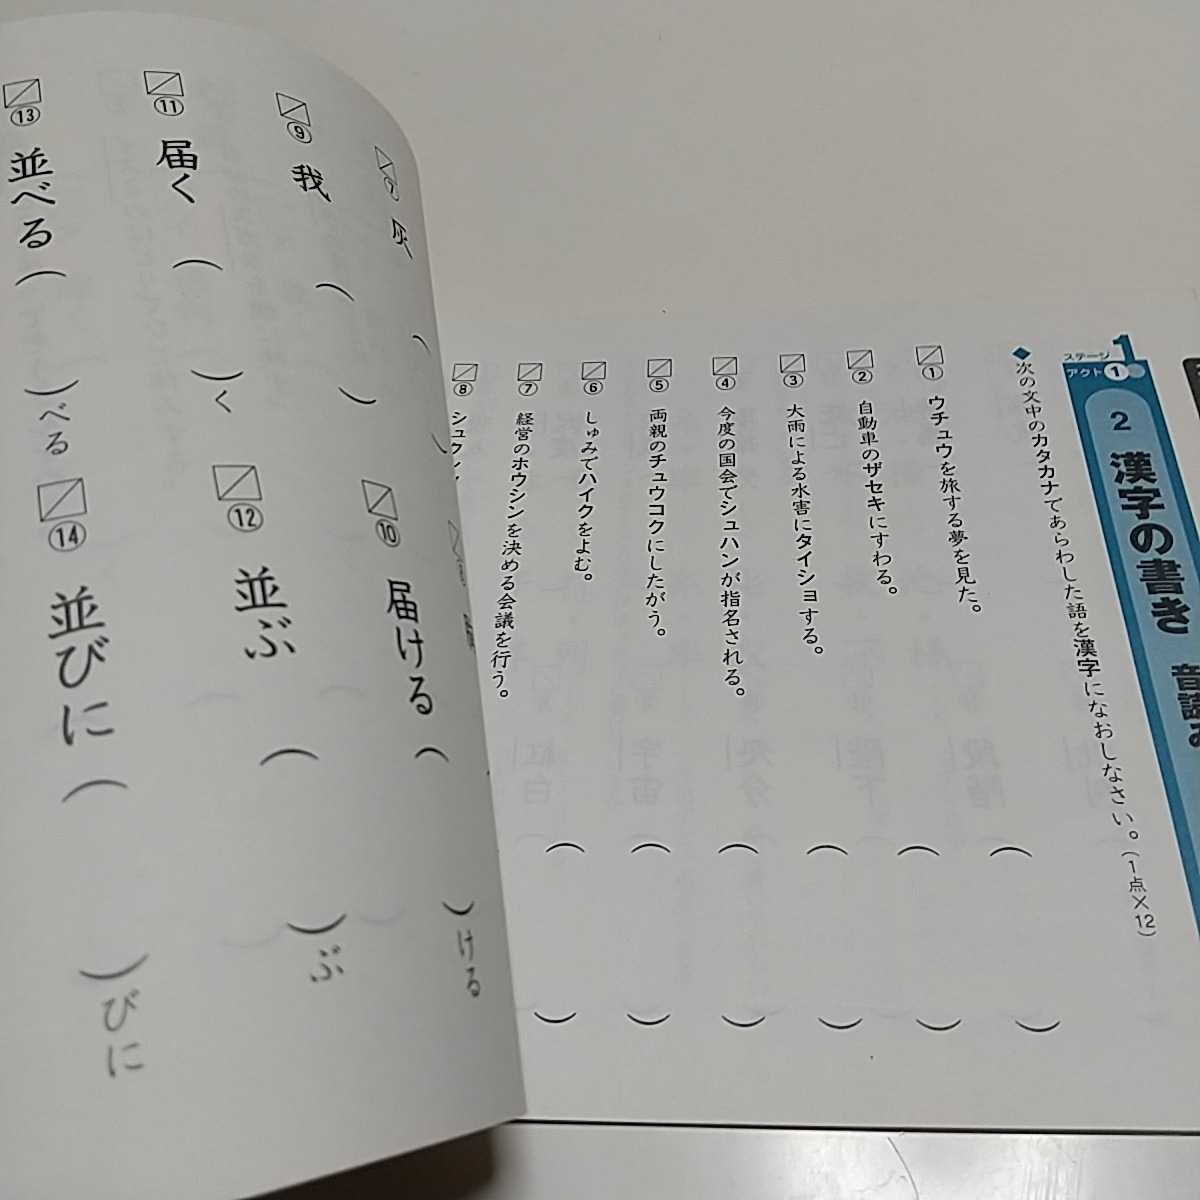 ステージ1
アクト①
2 漢字の書き 音読み
◆次の文中のカタカナであらわした語を漢字になおしなさい。(1点×12)
① ウチュウを旅する夢を見た。( )
② 自動車のザセキにすわる。( )
③ 大雨による水害にタイショする。( )
④ 今度の国会でシュハンが指名される。( )
⑤ 両親のチュウコクにしたがう。( )
⑥ しゅみでハイクをよむ。( )
⑦ 経営のホウシンを決める会議を行う。
⑧
⑦ 灰 (
⑨ 我 ( )
⑩ 届ける ( )ける
⑪ 届く ( )く
⑫ 並ぶ ( )ぶ
⑬ 並べる ( )べる
⑭ 並びに ( )びに